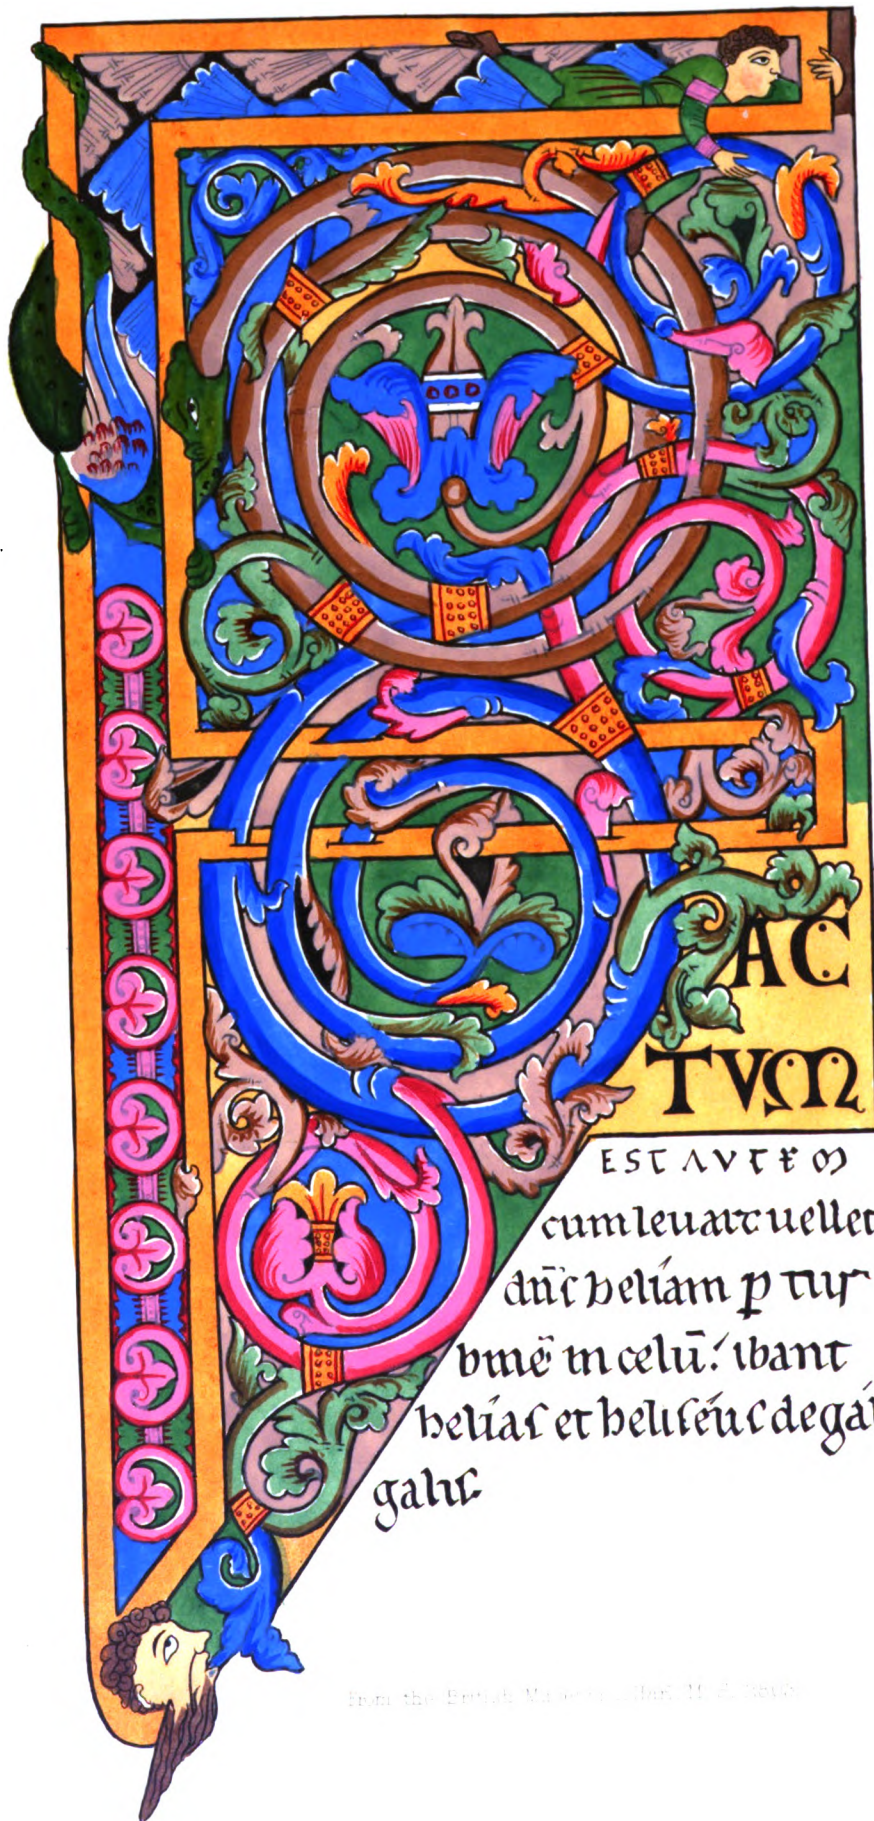 AC
TVM
EST AVTEM
cum leuare uellet
dn̄s heliam p tur
binē in celū: ibant
helias et heliseus de gal
galis.
From the British Museum